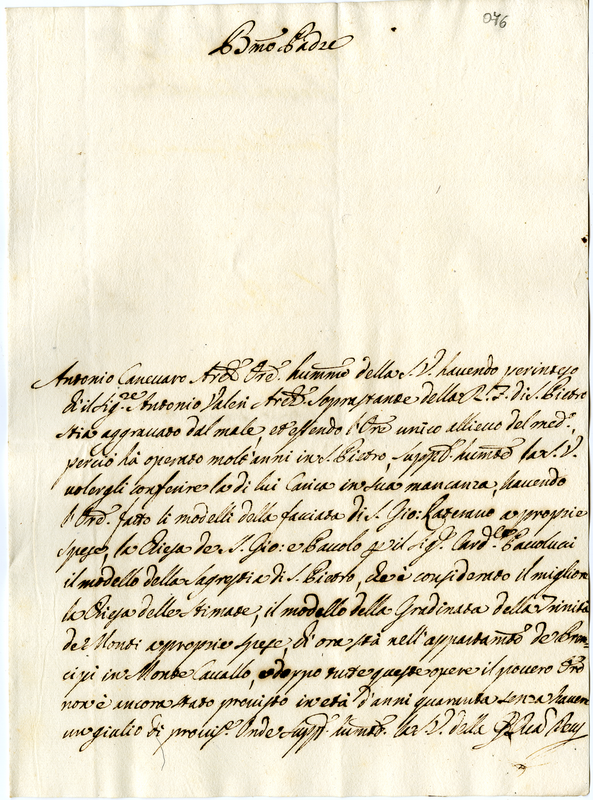 076
Bmo Padre
Antonio Canevaro Archo Ore. hummo della S. V. havendo per inteso
che il Sigre. Antonio Valeri Archo. Soprastante della R. F. di S. Pietro
stia aggravato dal male, et essendo l'Ore unico allievo del medo.,
perciò hà operato molt'anni in S. Pietro, suppca. humte la S. V.
volergli conferire la di lui Carica in sua mancanza, havendo
l'Ore. fatto li modelli della faciata di S. Gio: Laterano a proprie
spese, la Chiesa de S. Gio: e Pauolo per il Sigr. Cardle Pauolucci
il modello della Sagrestia di S. Pietro, che è considerato il migliore
la Chiesa delle Stimate, il modello della Gradinata della Trinità
de Monti a proprie spese, di ora stà nell'appartamto de Prin=
cipi in Monte Cavallo, e doppo tutte queste opere il povero Ore
non è ancora stato provisto in età d'anni quaranta senza havere
un giulio di provis. Onde suppca. humte. la S. V. della